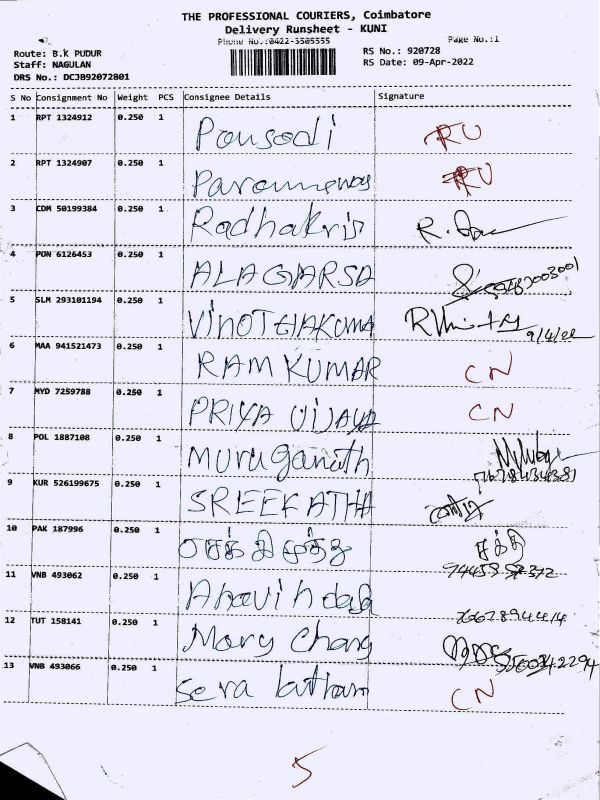 THE PROFESSIONAL COURIERS, Coimbatore
Delivery Runsheet - KUNI
Phone No.:0422-3505555 Page No.:1
Route: B.K PUDUR RS No.: 920728
Staff: NAGULAN RS Date: 09-Apr-2022
DRS No.: DCJB92072801
S No Consignment No Weight PCS Consignee Details Signature
1 RPT 1324912 0.250 1 Ponsodi RU
2 RPT 1324907 0.250 1 RU
3 CDM 50199384 0.250 1 Radhakris
4 PON 6126453 0.250 1 ALAGARSA
5 SLM 293101194 0.250 1 VINOTHAKUMA 9/4/22
6 MAA 941521473 0.250 1 RAM KUMAR CN
7 MYD 7259788 0.250 1 PRIYA VIJAYA CN
8 POL 1887108 0.250 1 Muruganath
9 KUR 526199675 0.250 1 SREEKATHA
10 PAK 187996 0.250 1 சக்தி
11 VNB 493062 0.250 1 Aravindah
12 TUT 158141 0.250 1 Mary Chang
13 VNB 493066 0.250 1 CN
5